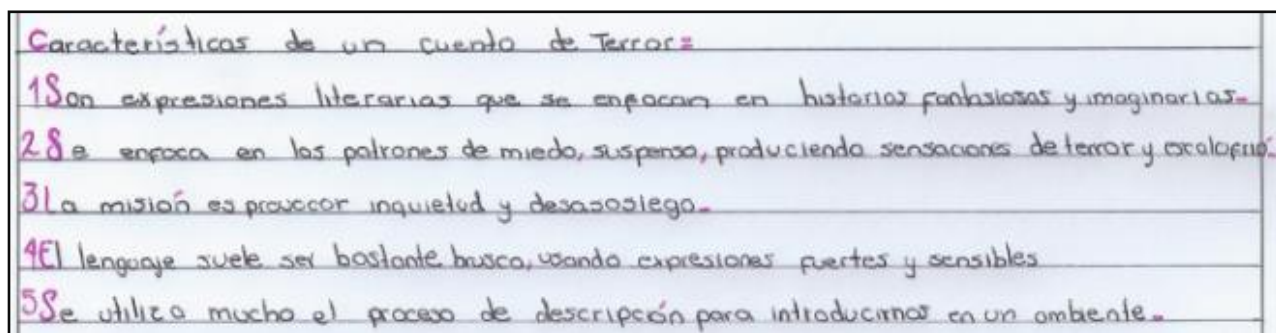 Características de un cuento de Terror:
1 Son expresiones literarias que se enfocan en historias fantasiosas y imaginarias.
2 Se enfoca en los patrones de miedo, suspenso, produciendo sensaciones de terror y escalofrió.
3 La misión es provocar inquietud y desasosiego.
4 El lenguaje suele ser bastante busco, usando expresiones fuertes y sensibles
5 Se utiliza mucho el proceso de descripción para introducirnos en un ambiente.